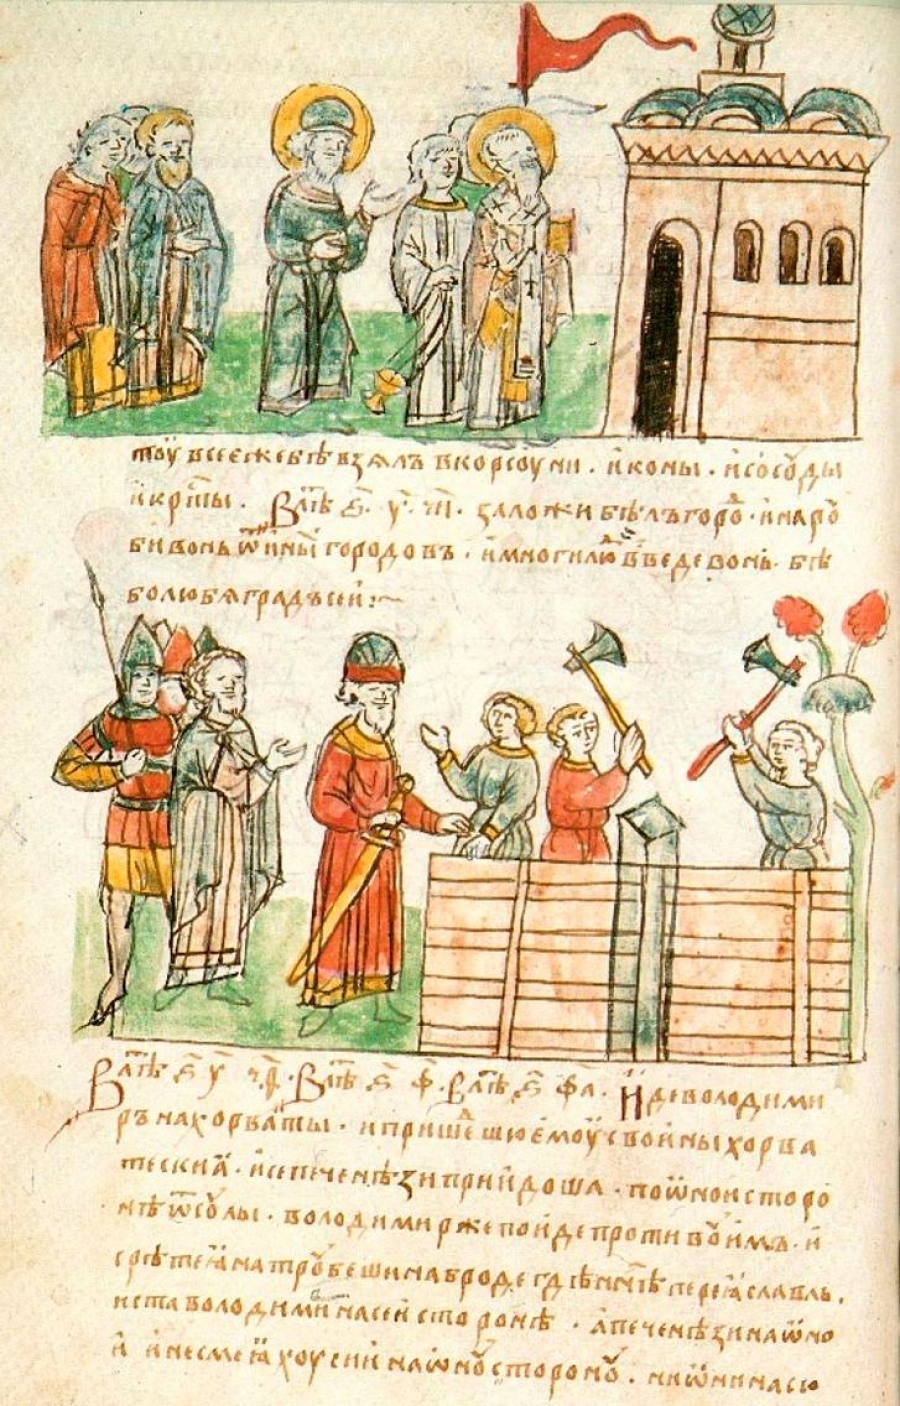 тоу всеежебѣвзялъ вкорсоуни · иконы · исосоуды
икрⷭ҇ты · Влѣⷮ ҂s҃ · у҃ · ч҃ · заложи бѣлъгороⷣ · инарꙋ
бивонь ѿ иныⷯ городовъ · имногилюⷣ введевонь · бѣ
болюбяградъсеи :~
Влѣⷮ ҂s҃ у҃ ч҃ф · Влѣⷮ ҂s҃ ф҃ · Влѣⷮ ҂s҃ ф҃а · Идеволодими
ръ нахорваты · ипришеⷣшюемоу свойныхорва
тескиа · исепеченѣзи приидоша · поѡноисторо
нѣ ѿ сꙋлы · володимиржепоидепротивꙋимъ · и
срѣтеꙗ натрꙋбешинабродегдѣннѣ переꙗславль ·
иста володимиⷬ насеистороне · апеченѣзинаѡно
и инесмеꙗхоусиинаѡнꙋсторонꙋ · ниѡнинасю